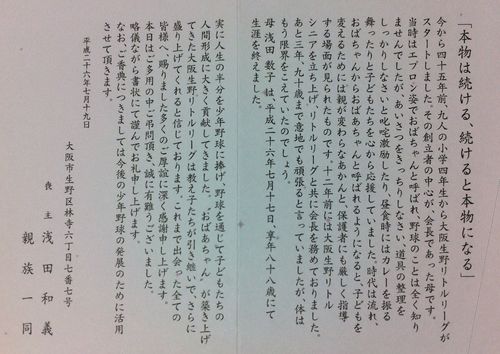 「本物は続ける、続けると本物になる」
今から四十五年前、九人の小学四年生から大阪生野リトルリーグが
スタートしました。その創立者の中心が、会長であった母です。
当時はエプロン姿でおばちゃんと呼ばれ、野球のことは全く知り
ませんでしたが、あいさつをきっちりしなさい、道具の整理を
しっかりしなさいと叱咤激励したり、昼食時にはカレーを振る
舞ったりと子どもたちを心から応援していました。時代は流れ、
おばちゃんからおばあちゃんと呼ばれるようになると、子どもを
変えるためには親が変わらなあかんと、保護者にも厳しく指導
する場面が見られたものです。十二年前には大阪生野リトル
シニアを立ち上げ、リトルリーグと共に会長を務めておりました。
あと三年、九十歳まで意地でも頑張ると言っていましたが、体は
もう限界をこえていたのでしょう。
母 浅田 数子 は 平成二十六年七月十七日、享年八十八歳にて
生涯を終えました。
実に人生の半分を少年野球に捧げ、野球を通じて子どもたちの
人間形成に大きく貢献してきました。〝おばあちゃん〟が築き上げ
てきた大阪生野リトルリーグは教え子たちが引き継いで、さらに
盛り上げてくれると信じております。これまで出会った全ての
皆様へ、賜りました多くのご厚誼に深く感謝申し上げます。
本日はご多用の中ご弔問頂き、誠に有難うございました。
略儀ながら書状にて謹んでお礼申し上げます。
なお、ご香典につきましては今後の少年野球の発展のために活用
させて頂きます。
平成二十六年七月十九日
大阪市生野区林寺六丁目七番七号
喪 主 浅田 和義
親族一同